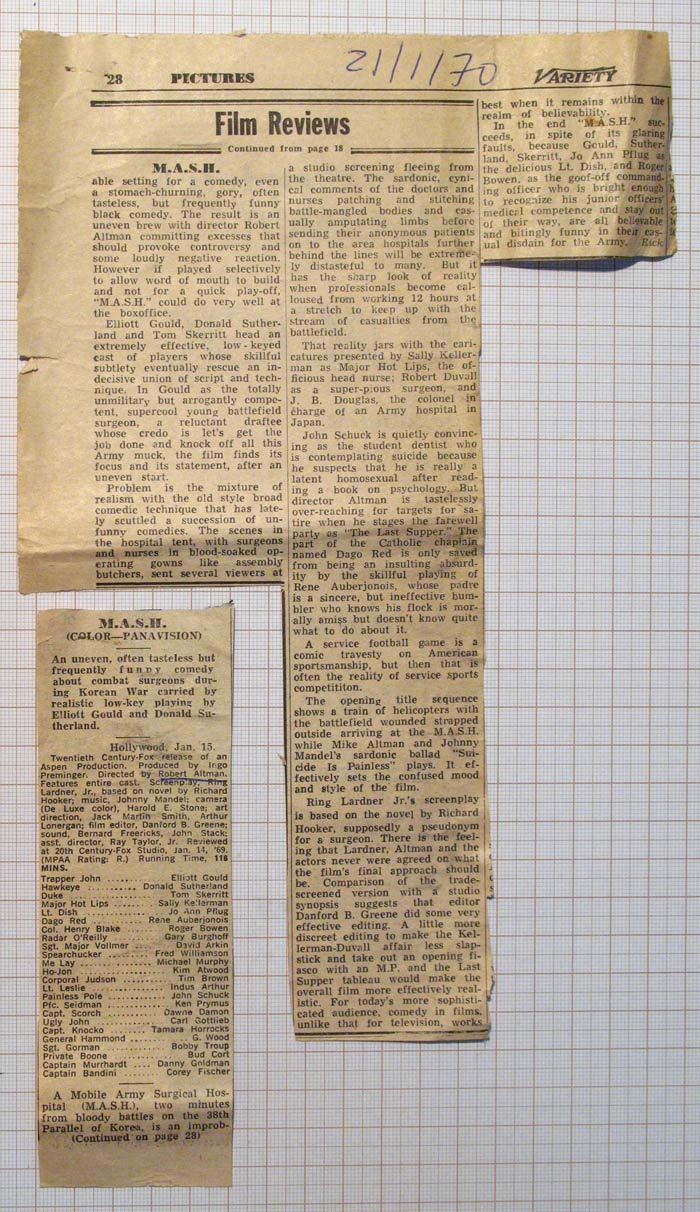 28 PICTURES 21/1/70 VARIETY
Film Reviews
Continued from page 18
M.A.S.H.
able setting for a comedy, even
a stomach-churning, gory, often
tasteless, but frequently funny
black comedy. The result is an
uneven brew with director Robert
Altman committing excesses that
should provoke controversy and
some loudly negative reaction.
However if played selectively
to allow word of mouth to build
and not for a quick play-off,
"M.A.S.H." could do very well at
the boxoffice.
Elliott Gould, Donald Suther-
land and Tom Skerritt head an
extremely effective, low-keyed
cast of players whose skillful
subtlety eventually rescue an in-
decisive union of script and tech-
nique. In Gould as the totally
unmilitary but arrogantly compe-
tent, supercool young battlefield
surgeon, a reluctant draftee
whose credo is let's get the
job done and knock off all this
Army muck, the film finds its
focus and its statement, after an
uneven start.
Problem is the mixture of
realism with the old style broad
comedic technique that has late-
ly scuttled a succession of un-
funny comedies. The scenes in
the hospital tent, with surgeons
and nurses in blood-soaked op-
erating gowns like assembly
butchers, sent several viewers at
a studio screening fleeing from
the theatre. The sardonic, cyni-
cal comments of the doctors and
nurses patching and stitching
battle-mangled bodies and cas-
ually amputating limbs before
sending their anonymous patients
on to the area hospitals further
behind the lines will be extreme-
ly distasteful to many. But it
has the sharp look of reality
when professionals become cal-
loused from working 12 hours at
a stretch to keep up with the
stream of casualties from the
battlefield.
That reality jars with the cari-
catures presented by Sally Keller-
man as Major Hot Lips, the of-
ficious head nurse; Robert Duvall
as a super-pious surgeon, and
J. B. Douglas, the colonel in
charge of an Army hospital in
Japan.
John Schuck is quietly convinc-
ing as the student dentist who
is contemplating suicide because
he suspects that he is really a
latent homosexual after read-
ing a book on psychology. But
director Altman is tastelessly
over-reaching for targets for sa-
tire when he stages the farewell
party as "The Last Supper." The
part of the Catholic chaplain
named Dago Red is only saved
from being an insulting absurd-
ity by the skillful playing of
Rene Auberjonois, whose padre
is a sincere, but ineffective bum-
bler who knows his flock is mor-
ally amiss but doesn't know quite
what to do about it.
A service football game is a
comic travesty on American
sportsmanship, but then that is
often the reality of service sports
competititon.
The opening title sequence
shows a train of helicopters with
the battlefield wounded strapped
outside arriving at the M.A.S.H.
while Mike Altman and Johnny
Mandel's sardonic ballad "Sui-
cide Is Painless" plays. It ef-
fectively sets the confused mood
and style of the film.
Ring Lardner Jr.'s screenplay
is based on the novel by Richard
Hooker, supposedly a pseudonym
for a surgeon. There is the feel-
ing that Lardner, Altman and the
actors never were agreed on what
the film's final approach should
be. Comparison of the trade-
screened version with a studio
synopsis suggests that editor
Danford B. Greene did some very
effective editing. A little more
discreet editing to make the Kel-
lerman-Duvall affair less slap-
stick and take out an opening fi-
asco with an M.P. and the Last
Supper tableau would make the
overall film more effectively real-
istic. For today's more sophisti-
cated audience, comedy in films,
unlike that for television, works
best when it remains within the
realm of believability.
In the end "M.A.S.H." suc-
ceeds, in spite of its glaring
faults, because Gould, Suther-
land, Skerritt, Jo Ann Pflug as
the delicious Lt. Dish, and Roger
Bowen, as the goof-off command-
ing officer who is bright enough
to recognize his junior officers'
medical competence and stay out
of their way, are all believable
and bitingly funny in their cas-
ual disdain for the Army. Rick.
M.A.S.H.
(COLOR—PANAVISION)
An uneven, often tasteless but
frequently funny comedy
about combat surgeons dur-
ing Korean War carried by
realistic low-key playing by
Elliott Gould and Donald Su-
therland.
Hollywood, Jan. 15.
Twentieth Century-Fox release of an
Aspen Production. Produced by Ingo
Preminger. Directed by Robert Altman.
Features entire cast. Screenplay, Ring
Lardner, Jr., based on novel by Richard
Hooker; music, Johnny Mandel; camera
(De Luxe color), Harold E. Stone; art
direction, Jack Martin Smith, Arthur
Lonergan; film editor, Danford B. Greene;
sound, Bernard Freericks, John Stack;
asst. director, Ray Taylor, Jr. Reviewed
at 20th Century-Fox Studio, Jan. 14, '69.
(MPAA Rating: R.) Running Time, 116
MINS.
Trapper John ..... Elliott Gould
Hawkeye ......... Donald Sutherland
Duke ............ Tom Skerritt
Major Hot Lips .... Sally Kellerman
Lt. Dish .......... Jo Ann Pflug
Dago Red ....... Rene Auberjonois
Col. Henry Blake .... Roger Bowen
Radar O'Reilly ..... Gary Burghoff
Sgt. Major Vollmer .... David Arkin
Spearchucker ..... Fred Williamson
Me Lay .......... Michael Murphy
Ho-Jon ............ Kim Atwood
Corporal Judson ....... Tim Brown
Lt. Leslie .......... Indus Arthur
Painless Pole ....... John Schuck
Pfc. Seidman ........ Ken Prymus
Capt. Scorch ...... Dawne Damon
Ugly John ......... Carl Gottlieb
Capt. Knocko ..... Tamara Horrocks
General Hammond ....... G. Wood
Sgt. Gorman ....... Bobby Troup
Private Boone ........ Bud Cort
Captain Murrhardt .... Danny Goldman
Captain Bandini ..... Corey Fischer
A Mobile Army Surgical Hos-
pital (M.A.S.H.), two minutes
from bloody battles on the 38th
Parallel of Korea, is an improb-
(Continued on page 28)